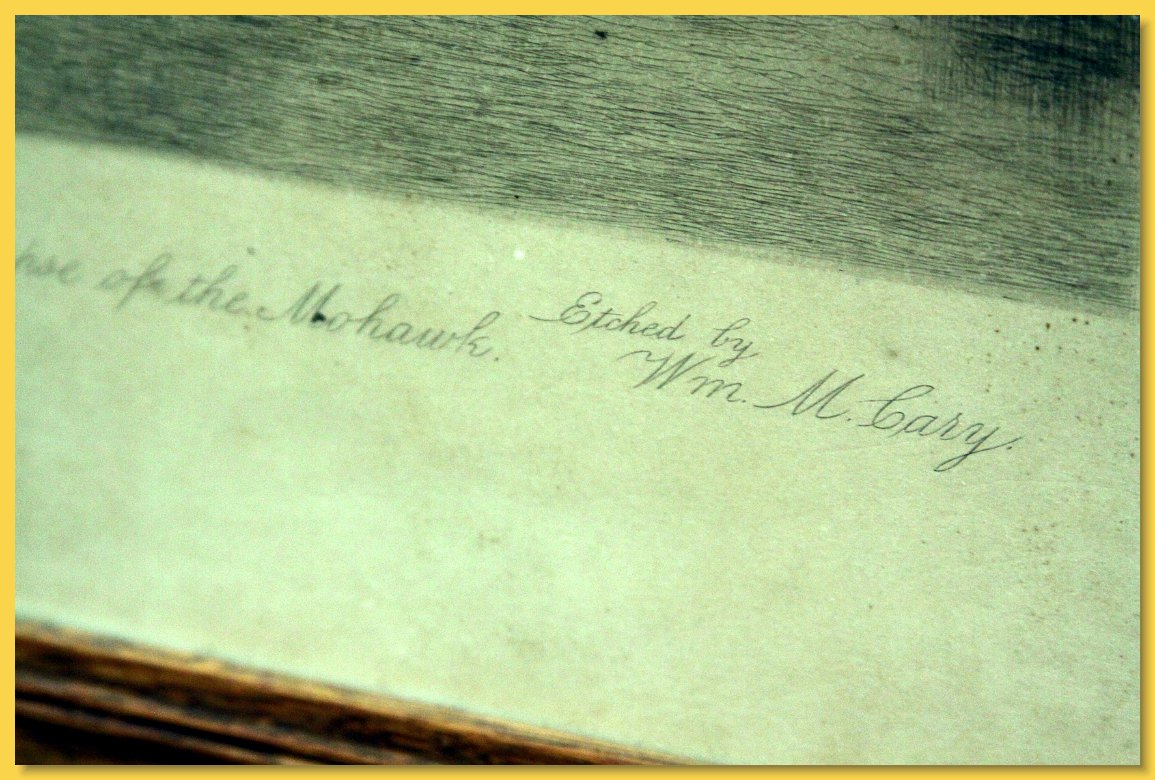 of the Mohawk.
Etched by
Wm. M. Cary.